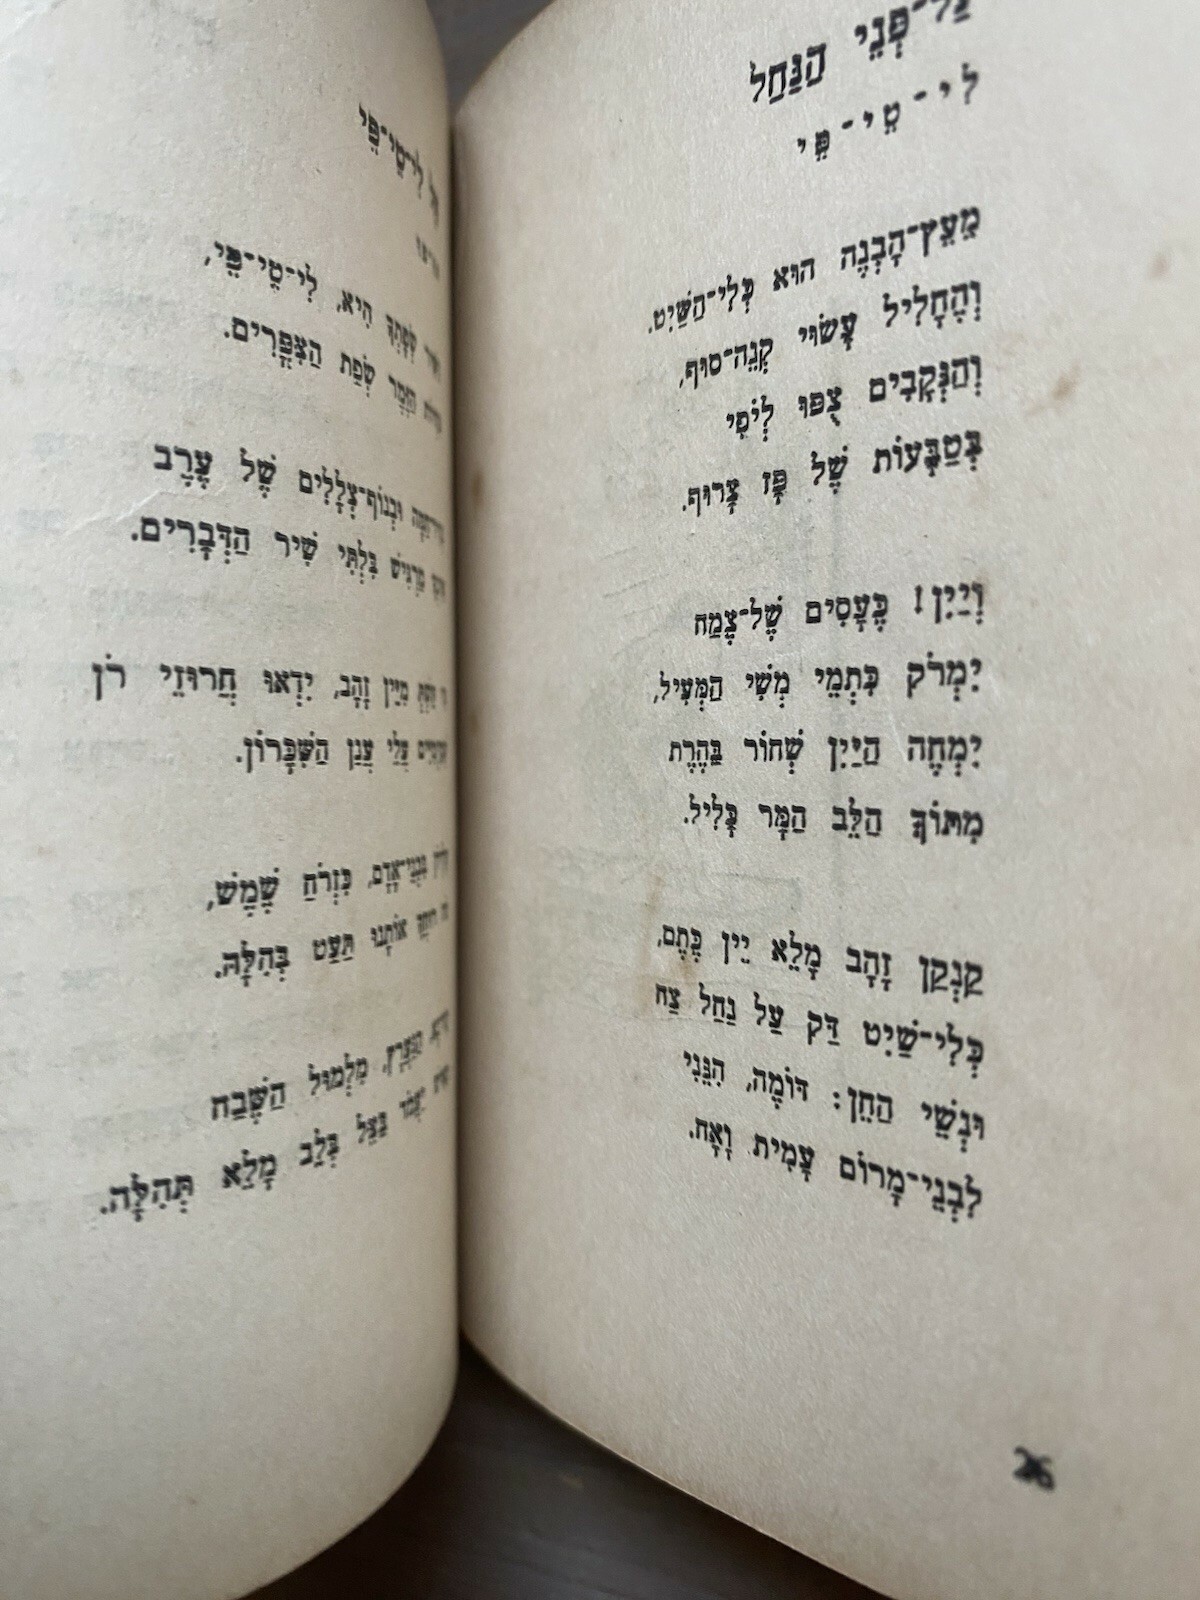 עַל־פְּנֵי הַנַּחַל
לִי־טֵי־פֵּי
מֵעֵץ־הָבְנֶה הוּא כְּלִי־הַשַּׁיִט.
וְהֶחָלִיל עָשׂוּי קְנֵה־סוּף,
וְהַנְּקָבִים צֻפּוּ לְיֹפִי
בְּטַבְּעוֹת שֶׁל פָּז צָרוּף.
וְיַיִן! כֶּעָסִים שֶׁל־צֶמַח
יִמְרֹק כִּתְמֵי מְשִׁי הַמְּעִיל,
יִמְחֶה הַיַּיִן שְׁחוֹר בַּהֶרֶת
מִתּוֹךְ הַלֵּב הַמָּר כָּלִיל.
קַנְקַן זָהָב מָלֵא יֵין כֶּתֶם,
כְּלִי־שַׁיִט דַּק עַל נַחַל צַח
וּנְשֵׁי הַחֵן: דּוֹמֶה, הִנֵּנִי
לִבְנֵי־מָרוֹם עָמִית וָאָח.
26
לִי־טֵי־פֵּי
שְׂפָתְךָ הִיא, לִי־טֵי־פֵּי,
הַזֶּמֶר שְׂפַת הַצִּפֳּרִים.
וּבְנוֹף־צְלָלִים שֶׁל עֶרֶב
מַרְגִּישׁ בִּלְתִּי שִׁיר הַדְּבָרִים.
מִיֵּין זָהָב, יִדְאוּ חֲרוּזֵי רֹן
עֲלֵי עֲנַן הַשִּׁכָּרוֹן.
בִּבְנֵי־אָדָם, כִּזְרֹחַ שֶׁמֶשׁ,
אוֹתָנוּ תַּעַט בְּהִלָּהּ.
מִלְמוּל הַשֶּׁבַח
בְּצֵל בְּלֵב מָלֵא תְּהִלָּה.